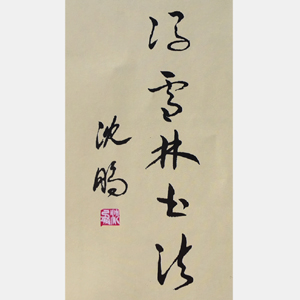 冯雪林书法
沈鹏